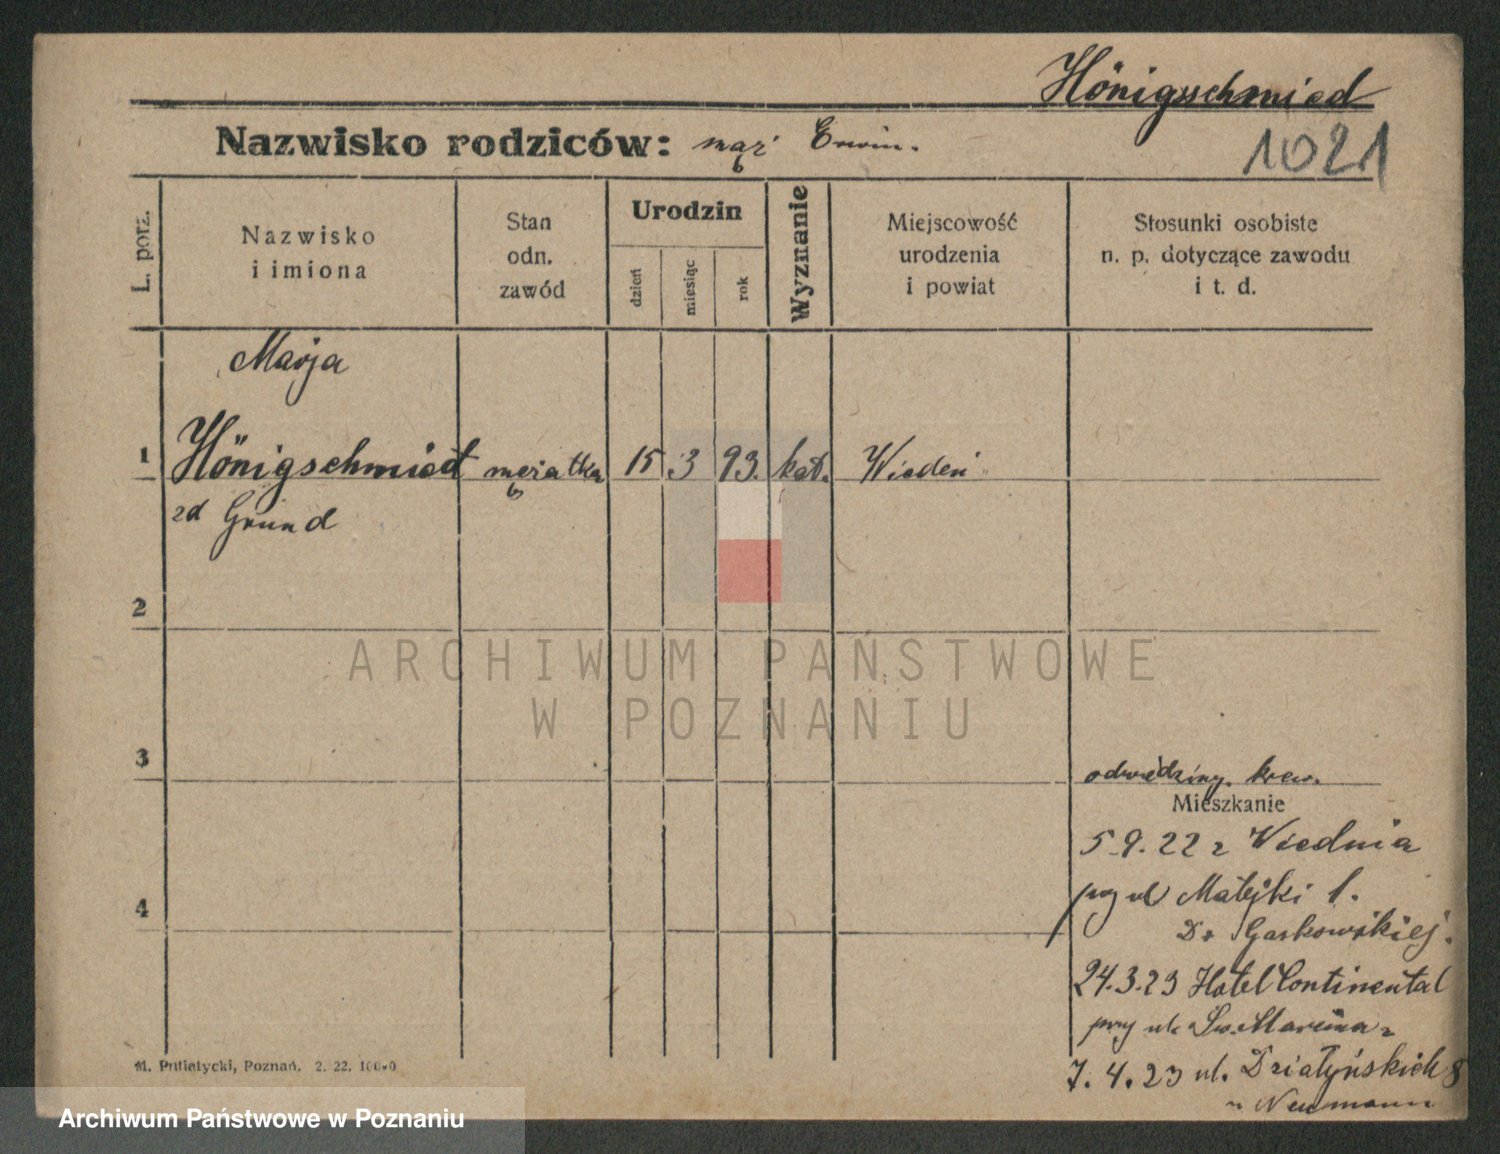 Hönigschmied
Nazwisko rodziców: mąż Erwin.
1021
L. porz.
Nazwisko
i imiona
Stan
odn.
zawód
Urodzin
dzień
miesiąc
rok
Wyznanie
Miejscowość
urodzenia
i powiat
Stosunki osobiste
n. p. dotyczące zawodu
i t. d.
Marja
1 Hönigschmied mężatka 15 3 93. kat. Wiedeń
zd Grund
2
3
odwiedziny krew.
Mieszkanie
5.9.22 z Wiednia
przy ul Matejki 1.
4
Dr Garkowskiej.
24.3.23 Hotel Continental
przy ul. Św. Marcina
7.4.23 ul. Działyńskich 8
u Neumann
M. Putiatycki, Poznań. 2. 22.
ARCHIWUM PAŃSTWOWE
W POZNANIU
Archiwum Państwowe w Poznaniu